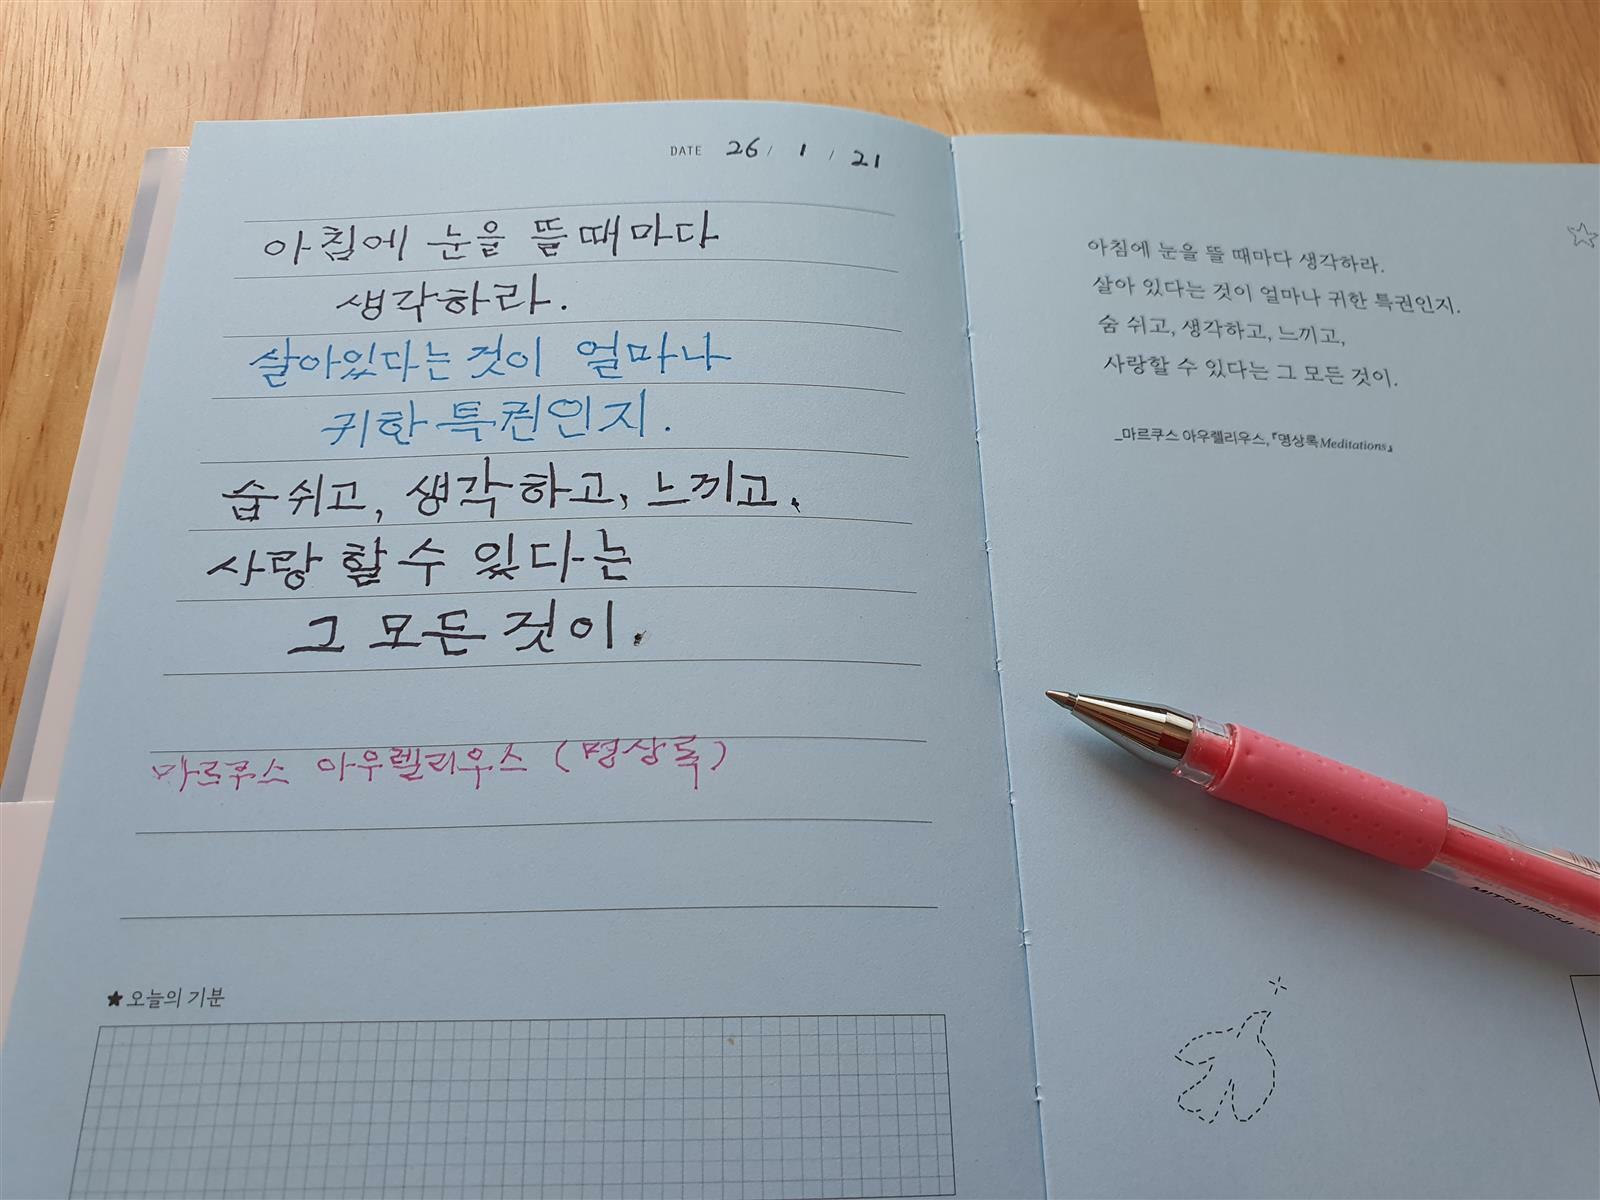 DATE 26 / 1 / 21
아침에 눈을 뜰때마다
생각하라.
살아있다는 것이 얼마나
귀한 특권인지.
숨 쉬고, 생각하고, 느끼고.
사랑 할 수 있다는
그 모든 것이.
마르쿠스 아우렐리우스 (명상록)
★ 오늘의 기분
아침에 눈을 뜰 때마다 생각하라.
살아 있다는 것이 얼마나 귀한 특권인지.
숨 쉬고, 생각하고, 느끼고,
사랑할 수 있다는 그 모든 것이.
_마르쿠스 아우렐리우스, 『명상록Meditations』
MITSUBISHI